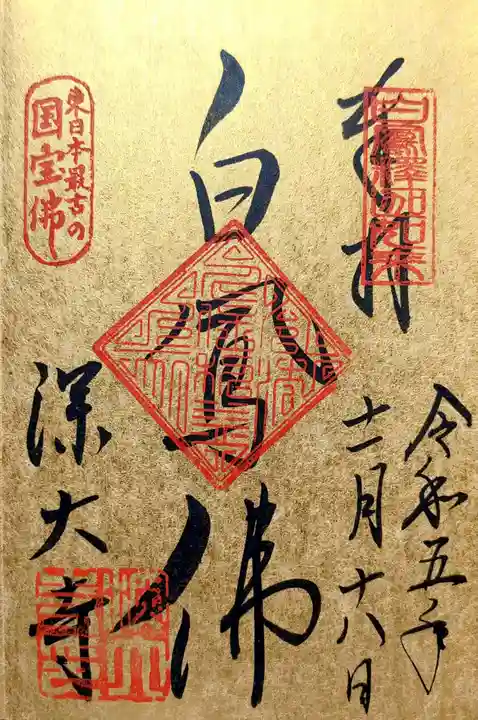 奉拝
白鳳釋迦如来
令和五年
十一月十八日
白鳳佛
東日本最古の
国宝佛
深大寺